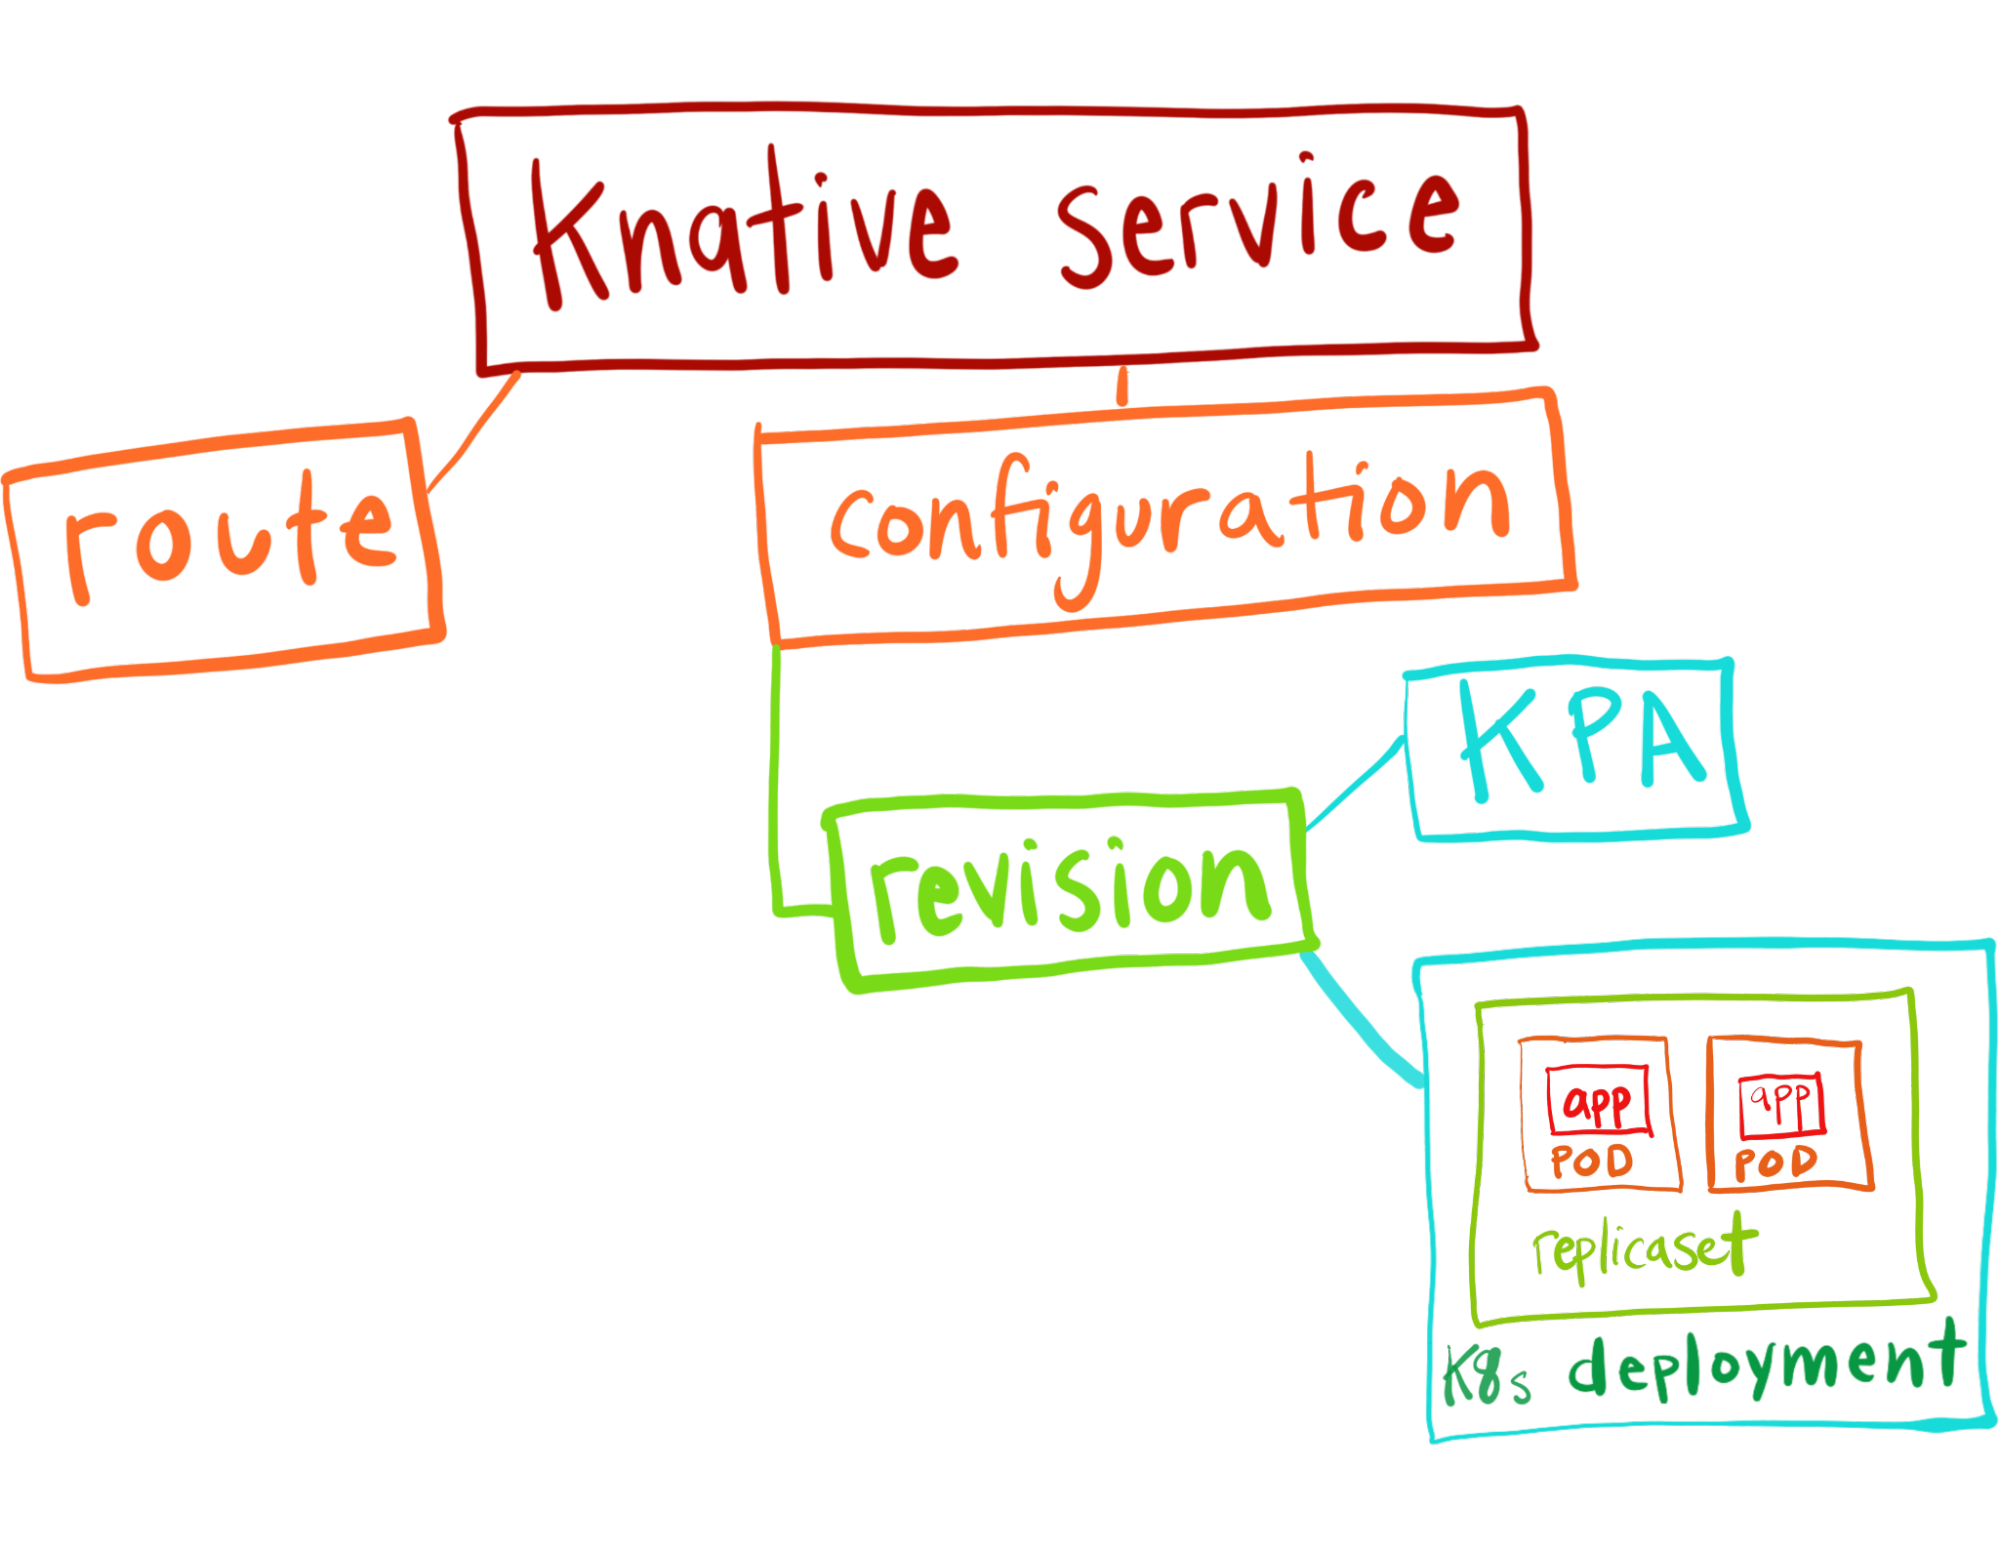 Knative service
route
configuration
KPA
revision
app
POD
app
POD
replicaset
K8s deployment